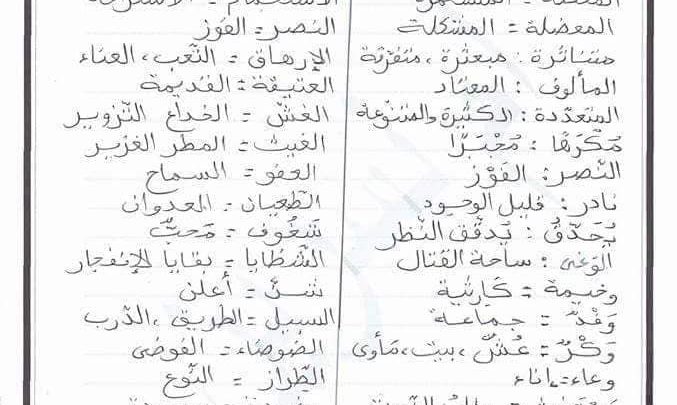 المعضلة = المشكلة
متناثرة : مبعثرة ، متفرقة
المألوف : المعتاد
المتعدّدة : الكثيرة والمتنوعة
مُكرَهًا : مُجْبَرًا
النّصر : الفَوْز
نادر : قليل الوجود
يُحَدّقُ : يُدقّق النّظر
الوَغى : ساحة القتال
وخيمة = كارثية
وَفْدٌ = جماعة
وَكْرٌ = عُشّ ، بيت ، مأوى
وعاء = إناء
النصر = الفوز
الإرهاق = التّعب ، العناء
العتيقة = القديمة
الغشّ = الخداع التّزوير
الغيث = المطر الغزير
العفو = السماح
الطّغيان = العدوان
شَغُوف = مُحبّ
الشّظايا = بقايا الإنفجار
شنّ = أعلن
السبيل = الطريق ، الدّرب
الضّوضاء = الفوضى
الطّراز = النّوع